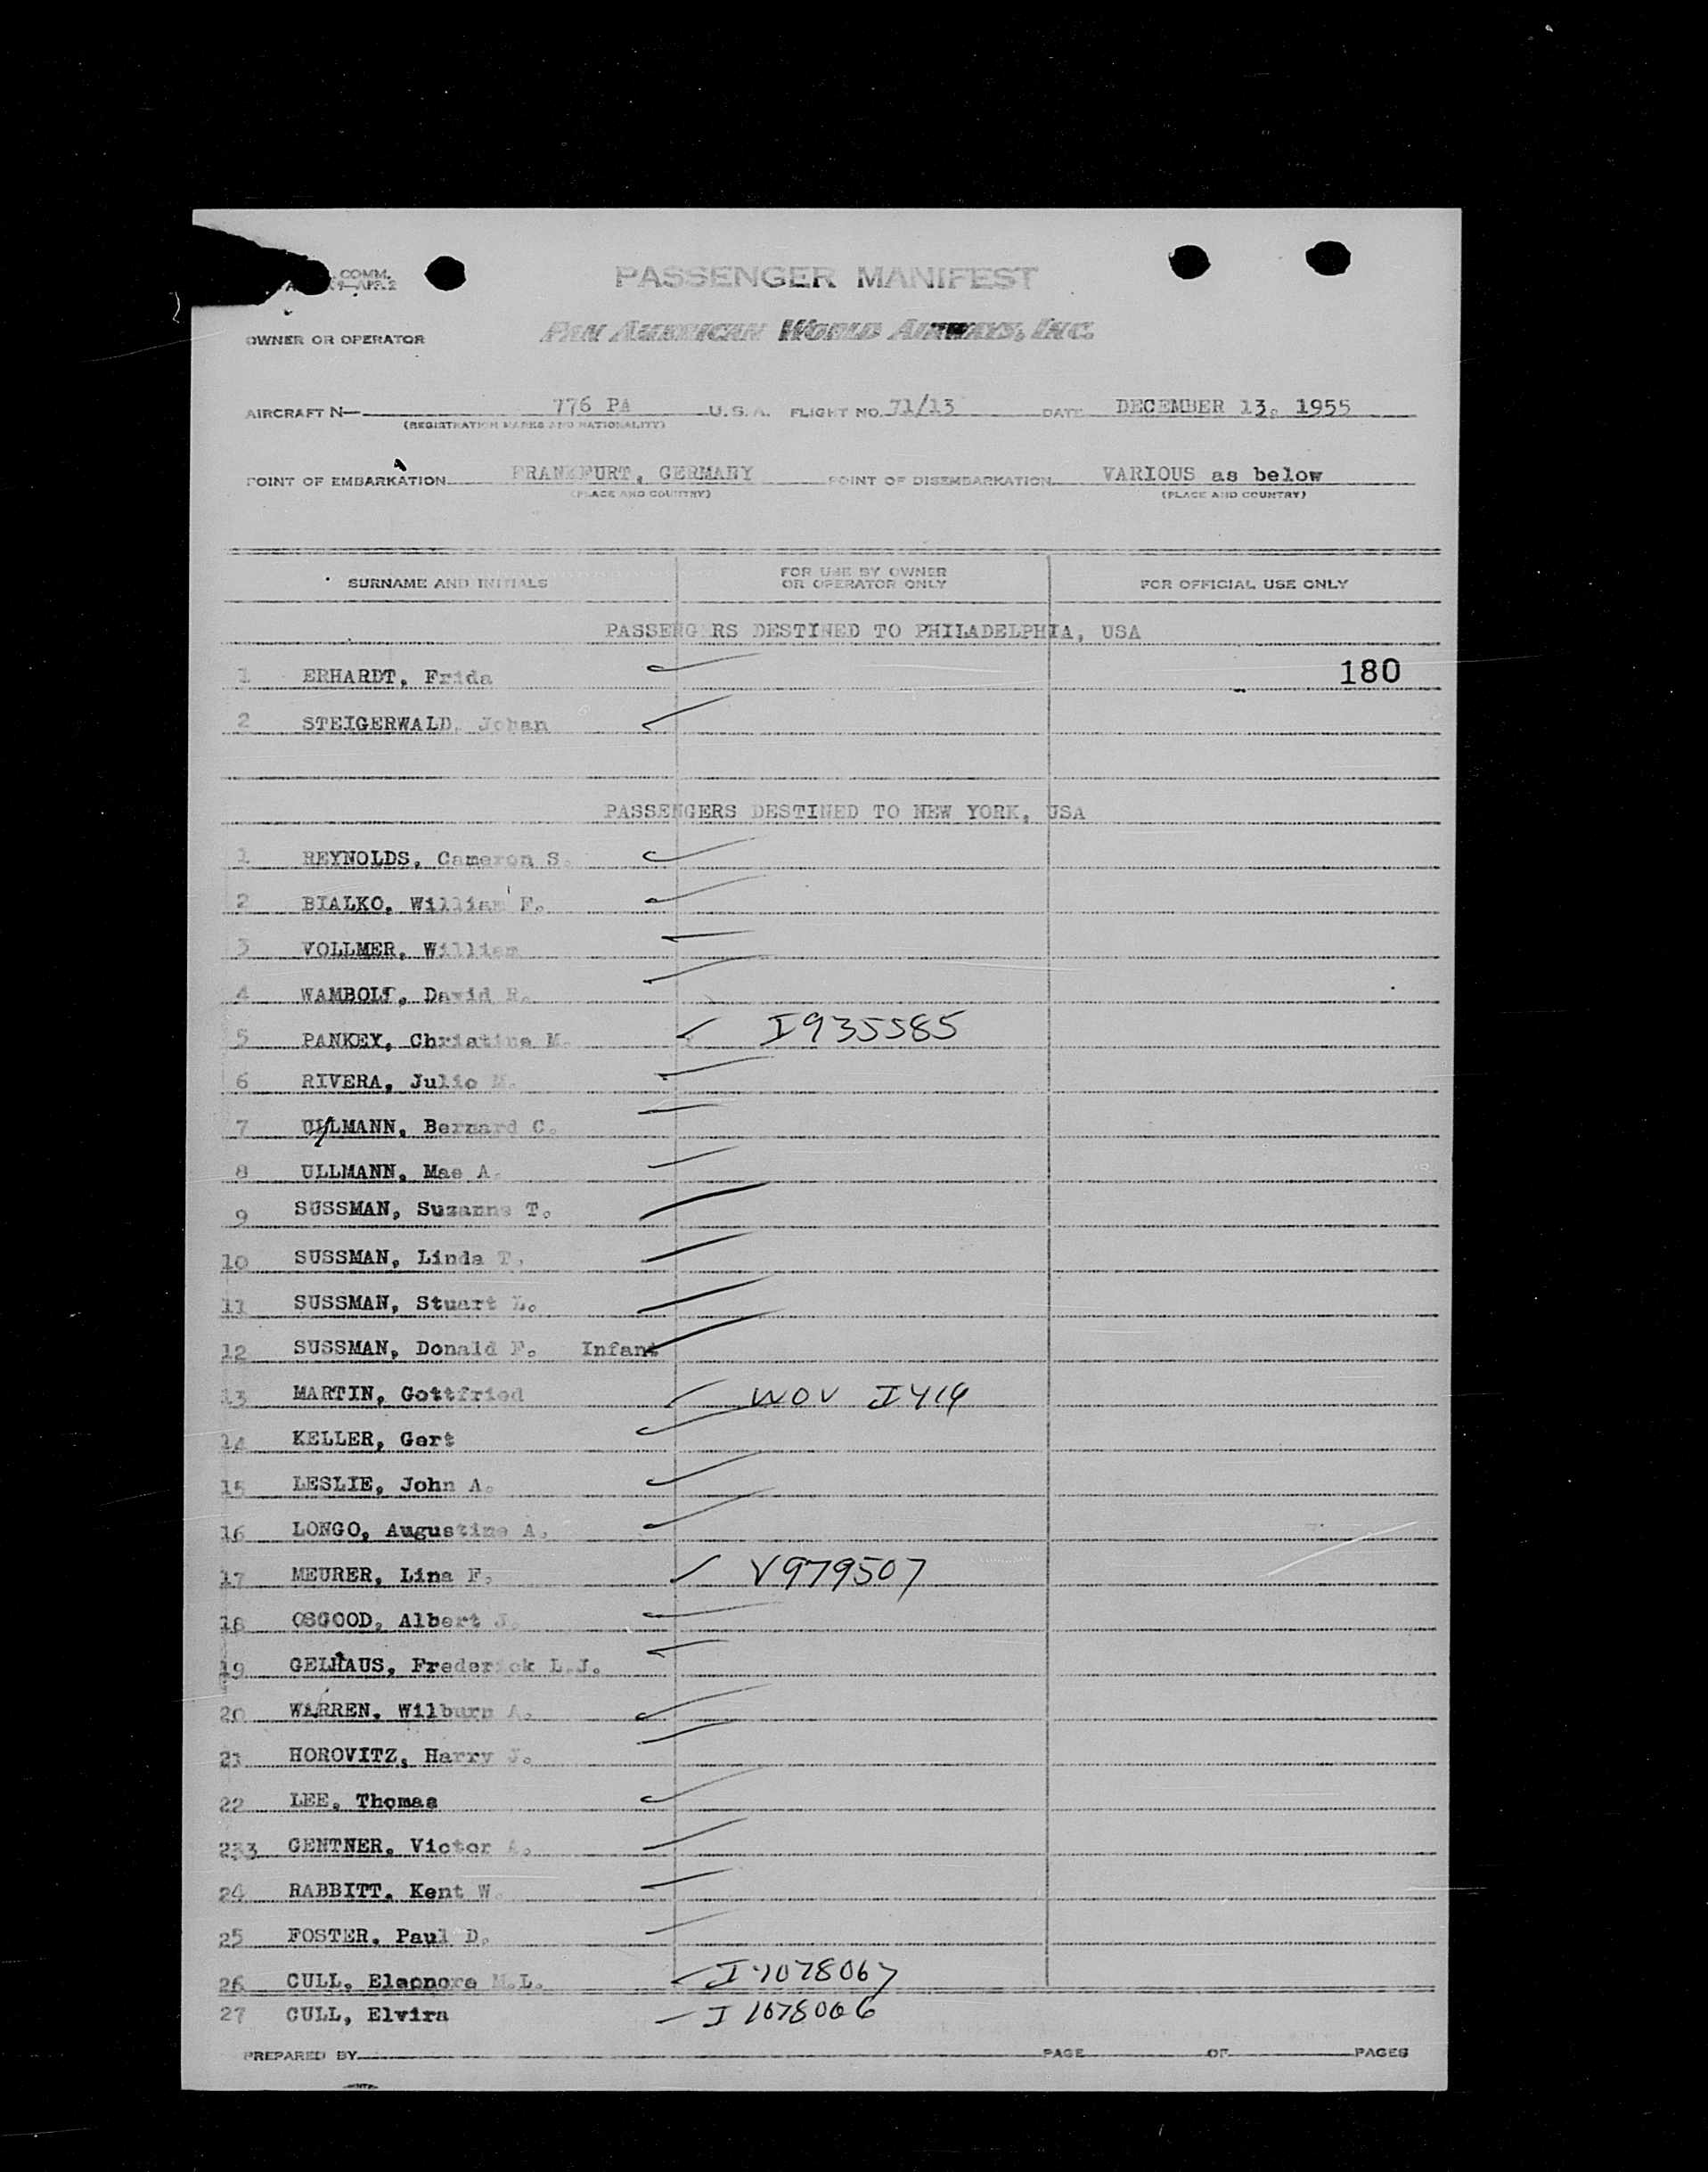 COMM.
PASSENGER MANIFEST
OWNER OR OPERATOR PAN AMERICAN WORLD AIRWAYS, INC.
AIRCRAFT N— 776 PA U.S.A. FLIGHT NO. 71/13 DATE DECEMBER 13, 1955
(REGISTRATION MARKS AND NATIONALITY)
POINT OF EMBARKATION FRANKFURT, GERMANY POINT OF DISEMBARKATION VARIOUS as below
(PLACE AND COUNTRY) (PLACE AND COUNTRY)
SURNAME AND INITIALS FOR USE BY OWNER OR OPERATOR ONLY FOR OFFICIAL USE ONLY
PASSENG RS DESTINED TO PHILADELPHIA, USA
1 ERHARDT, Frida 180
2 STEIGERWALD, Johan
PASSENGERS DESTINED TO NEW YORK, USA
1 REYNOLDS, Cameron S.
2 BIALKO, William F.
3 VOLLMER, William
4 WAMBOLT, David R.
5 PANKEY, Christine M. I935585
6 RIVERA, Julio M.
7 ULLMANN, Bernard C.
8 ULLMANN, Mae A.
9 SUSSMAN, Suzanne T.
10 SUSSMAN, Linda T.
11 SUSSMAN, Stuart L.
12 SUSSMAN, Donald F. Infant
13 MARTIN, Gottfried WOV I414
14 KELLER, Gert
15 LESLIE, John A.
16 LONGO, Augustine A.
17 MEURER, Lina F. V979507
18 OSGOOD, Albert J.
19 GELHAUS, Frederick L.J.
20 WARREN, Wilburn A.
21 HOROVITZ, Harry J.
22 LEE, Thomas
233 GENTNER, Victor A.
24 RABBITT, Kent W.
25 FOSTER, Paul D.
26 CULL, Eleonore M.L. I1078067
27 CULL, Elvira I1078066
PREPARED BY PAGE OF PAGES